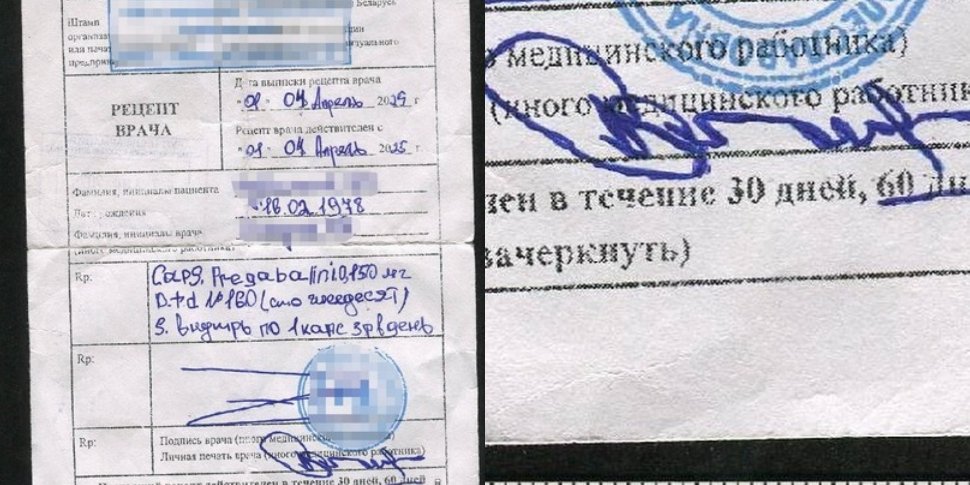 Беларусь
Штамп
организа
или печат
предприн
ции
идуального
РЕЦЕПТ
ВРАЧА
Дата выписки рецепта врача
"01" 04 Апрель 2025 г
Рецепт врача действителен с
"01" 04 Апрель 2025 г
Фамилия, инициалы пациента
18.02.1978
Фамилия, инициалы врача
(иного медицинского работника)
Rp:
Caps. Pregabalini 0,150 мг
D.t.d №160 (сто шесдесят)
S. внутрь по 1 капс 3 р в день
Rp:
Rp:
Подпись врача (иного медицинск
Личная печать врача (иного медицинского работника)
в течение 30 дней, 60 дней
о медицинского работника)
(иного медицинского работник
лен в течение 30 дней, 60 дн
зачеркнуть)